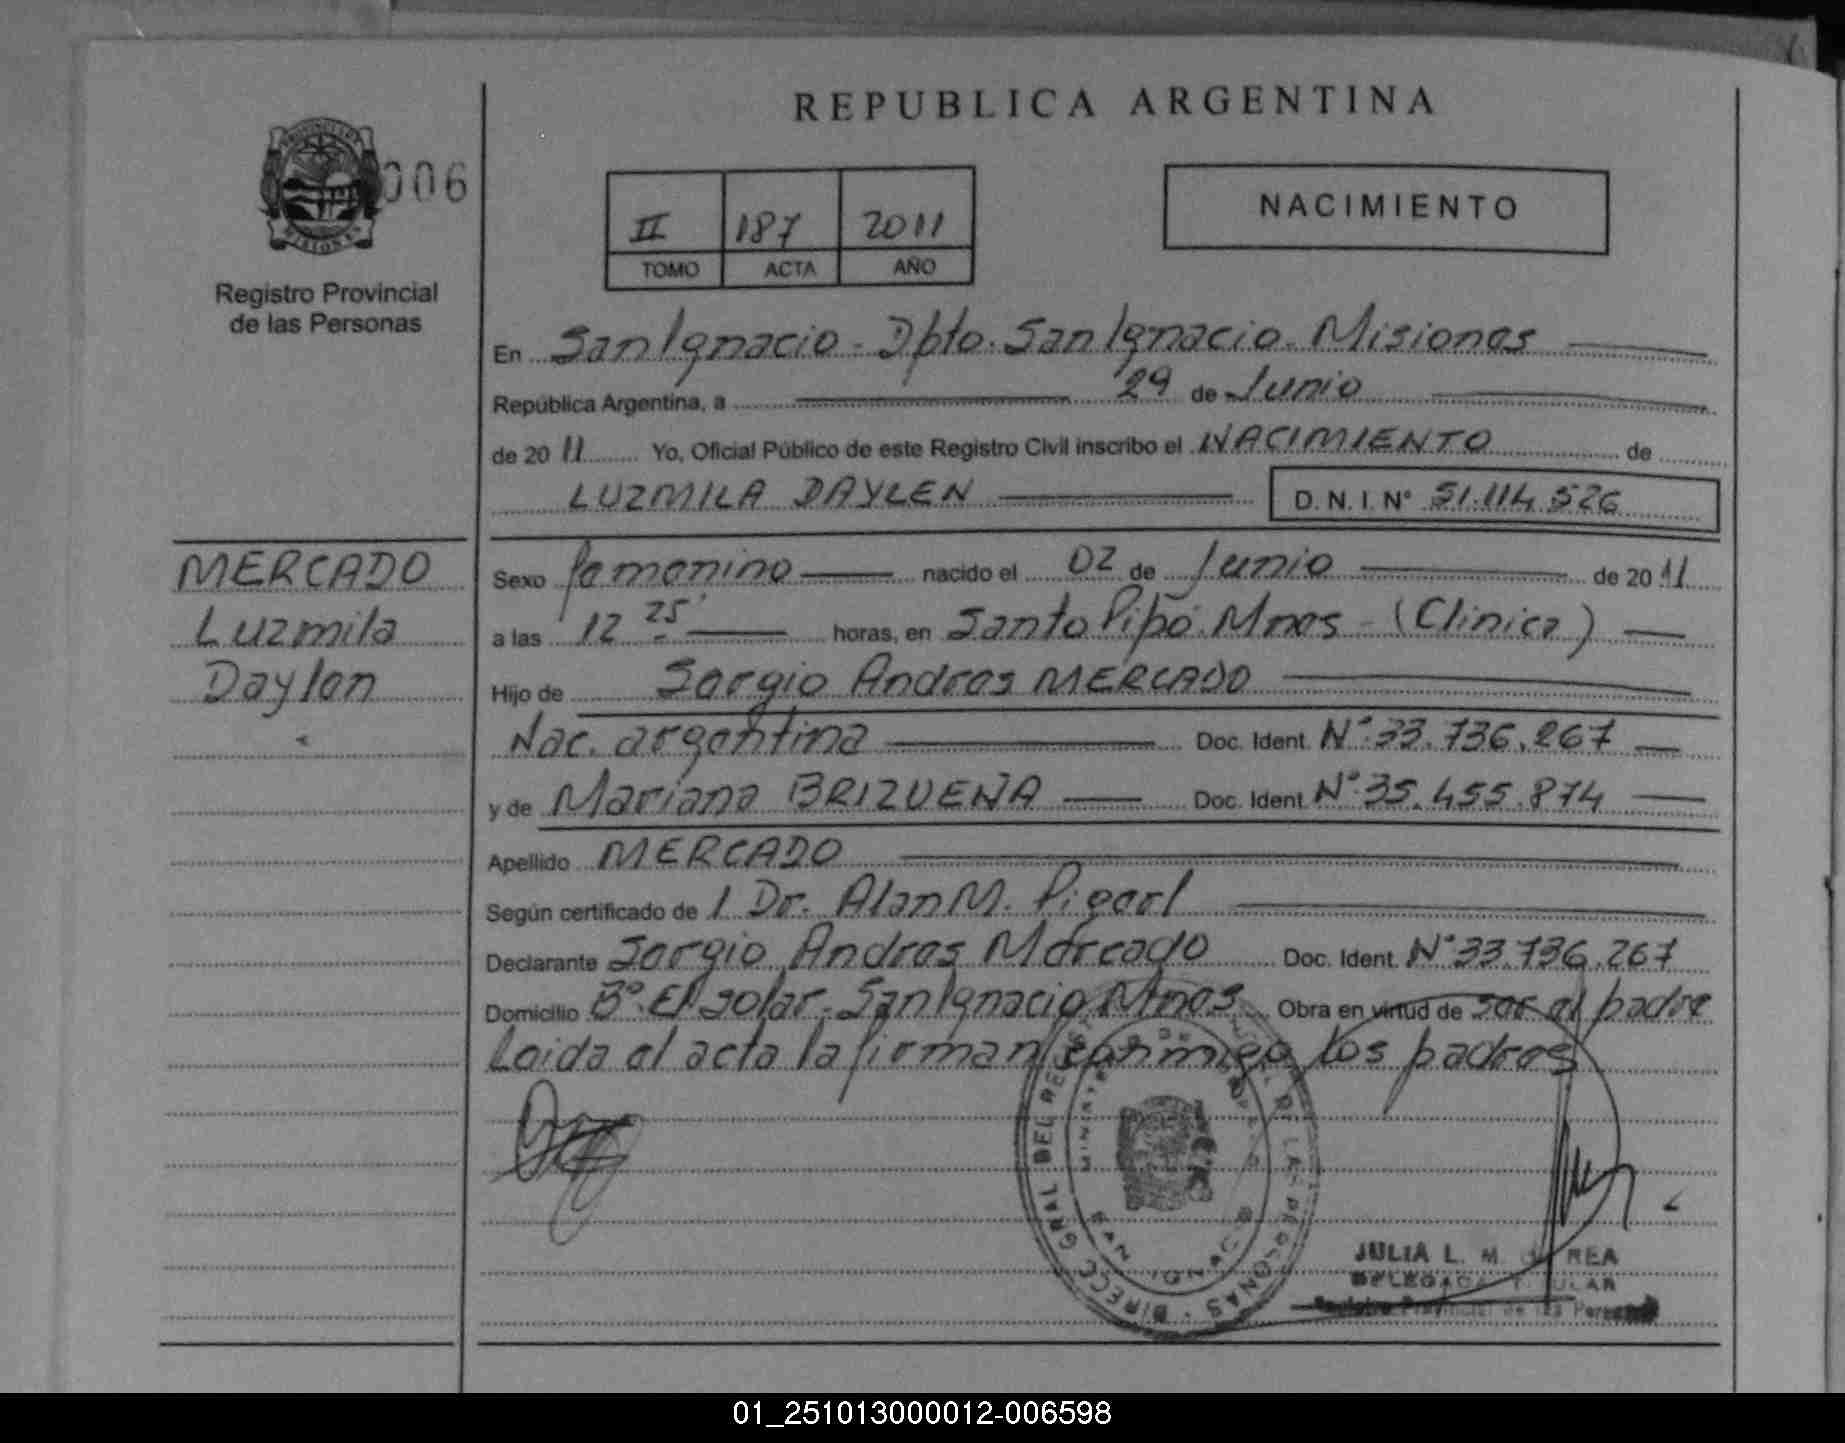 REPUBLICA ARGENTINA
006
NACIMIENTO
II 187 2011
TOMO ACTA AÑO
Registro Provincial
de las Personas
En San Ignacio - Dpto. San Ignacio - Misiones
República Argentina, a 29 de Junio
de 2011 Yo, Oficial Público de este Registro Civil inscribo el NACIMIENTO de
LUZMILA DAYLEN D.N.I. N° 51.114.526
MERCADO
Luzmila
Daylen
Sexo femenino nacido el 02 de Junio de 2011
a las 12 25' horas, en Santo Pipó. Mnes - (Clinica)
Hijo de Sergio Andres MERCADO
Nac. argentina Doc. Ident. N° 33.736.267
y de Mariana Doc. Ident. N° 35.455.874
Apellido MERCADO
Según certificado de 1 Dr. Alan M.
Declarante Sergio Andres Mercado Doc. Ident. N° 33.736.267
Domicilio B° El solar - San Ignacio Mnes Obra en virtud de ser el padre
Leida el acta la firman conmigo los padres
DIRECC GRAL DEL DE LAS PERSONAS
SAN IGNACIO
JULIA L. M.
DELEGADA TITULAR
Registro Provincial de las Personas
01_251013000012-006598